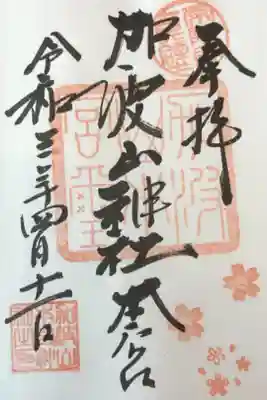 奉拝
加波山神社本宮
令和三年四月十一日